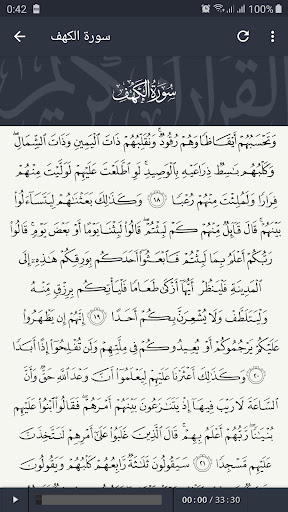 0:42 100%
سورة الكهف
القرآن الكريم
سورة الكهف
وَتَحْسَبُهُمْ أَيْقَاظًا وَهُمْ رُقُودٌ ۚ وَنُقَلِّبُهُمْ ذَاتَ الْيَمِينِ وَذَاتَ الشِّمَالِ ۖ
وَكَلْبُهُم بَاسِطٌ ذِرَاعَيْهِ بِالْوَصِيدِ ۚ لَوِ اطَّلَعْتَ عَلَيْهِمْ لَوَلَّيْتَ مِنْهُمْ
فِرَارًا وَلَمُلِئْتَ مِنْهُمْ رُعْبًا ١٨ وَكَذَٰلِكَ بَعَثْنَاهُمْ لِيَتَسَاءَلُوا
بَيْنَهُمْ ۚ قَالَ قَائِلٌ مِّنْهُمْ كَمْ لَبِثْتُمْ ۖ قَالُوا لَبِثْنَا يَوْمًا أَوْ بَعْضَ يَوْمٍ ۚ قَالُوا
رَبُّكُمْ أَعْلَمُ بِمَا لَبِثْتُمْ فَابْعَثُوا أَحَدَكُم بِوَرِقِكُمْ هَٰذِهِ إِلَى
الْمَدِينَةِ فَلْيَنظُرْ أَيُّهَا أَزْكَىٰ طَعَامًا فَلْيَأْتِكُم بِرِزْقٍ مِّنْهُ
وَلْيَتَلَطَّفْ وَلَا يُشْعِرَنَّ بِكُمْ أَحَدًا ١٩ إِنَّهُمْ إِن يَظْهَرُوا
عَلَيْكُمْ يَرْجُمُوكُمْ أَوْ يُعِيدُوكُمْ فِي مِلَّتِهِمْ وَلَن تُفْلِحُوا إِذًا أَبَدًا
٢٠ وَكَذَٰلِكَ أَعْثَرْنَا عَلَيْهِمْ لِيَعْلَمُوا أَنَّ وَعْدَ اللَّهِ حَقٌّ وَأَنَّ
السَّاعَةَ لَا رَيْبَ فِيهَا إِذْ يَتَنَازَعُونَ بَيْنَهُمْ أَمْرَهُمْ ۖ فَقَالُوا ابْنُوا عَلَيْهِم
بُنْيَانًا ۖ رَّبُّهُمْ أَعْلَمُ بِهِمْ ۚ قَالَ الَّذِينَ غَلَبُوا عَلَىٰ أَمْرِهِمْ لَنَتَّخِذَنَّ
عَلَيْهِم مَّسْجِدًا ٢١ سَيَقُولُونَ ثَلَاثَةٌ رَّابِعُهُمْ كَلْبُهُمْ وَيَقُولُونَ
00:00 / 33:30